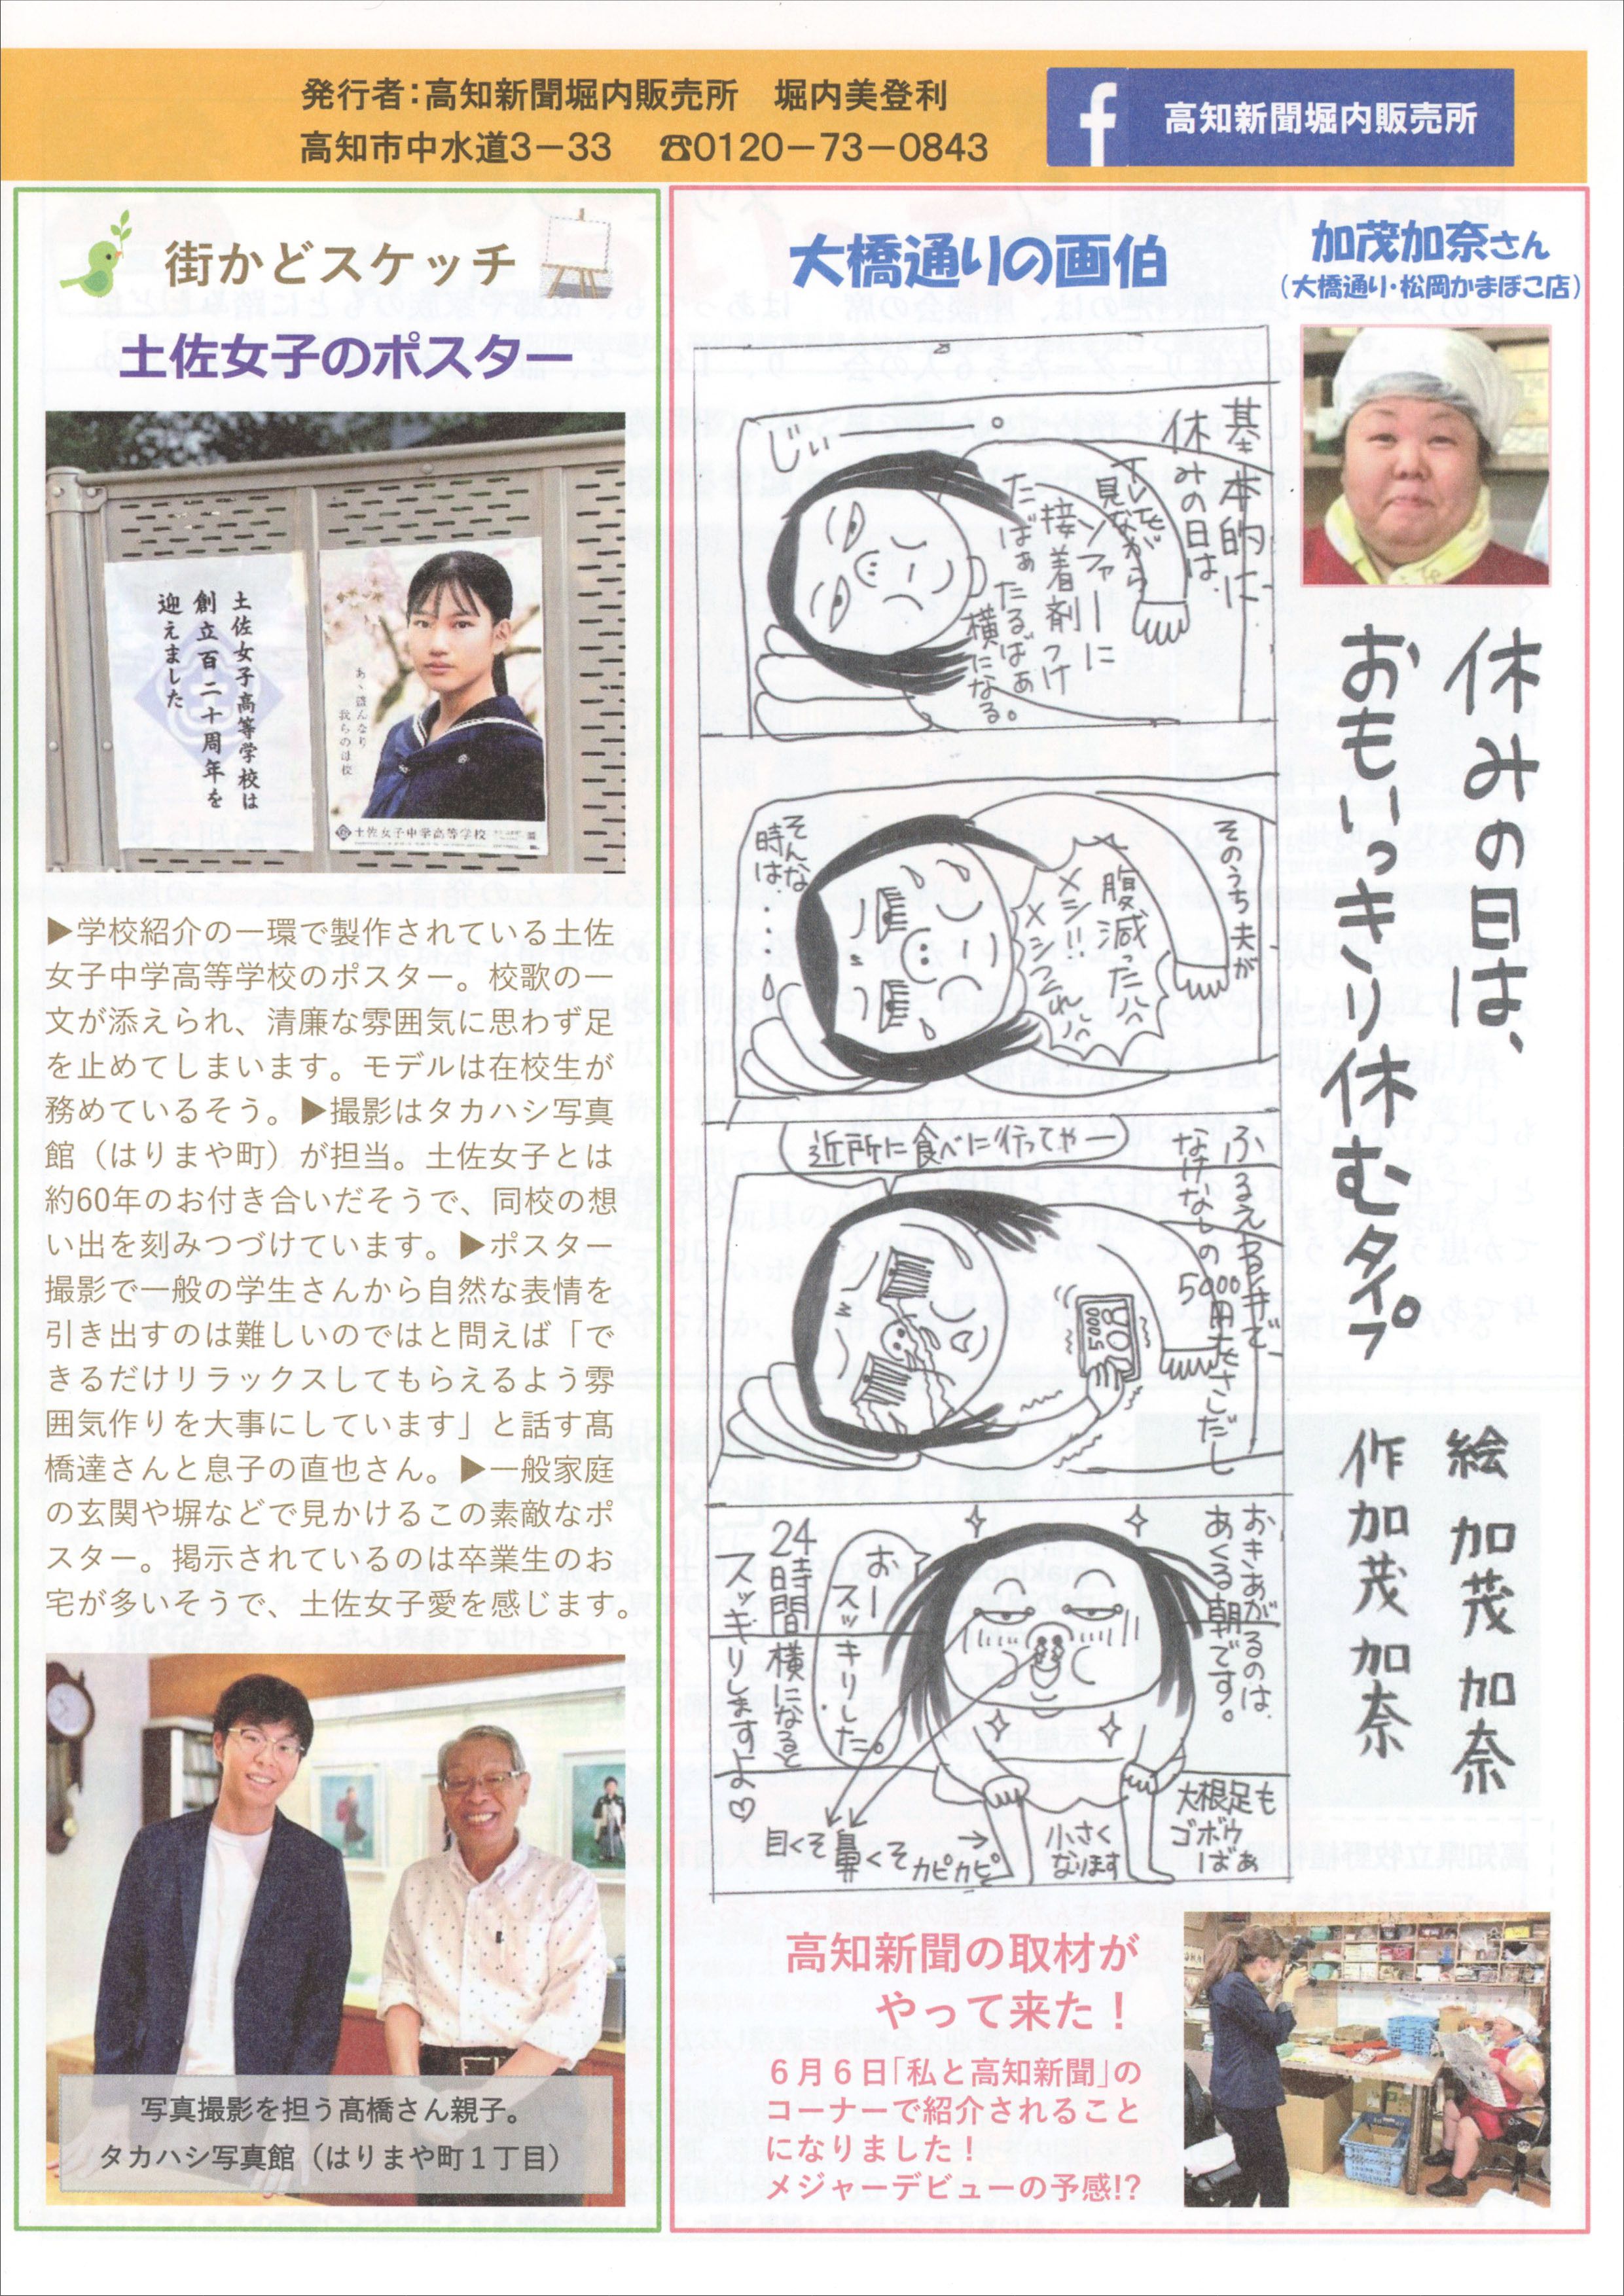 発行者：高知新聞堀内販売所　堀内美登利
高知市中水道3－33　☎0120－73－0843
f 高知新聞堀内販売所
街かどスケッチ
土佐女子のポスター
土佐女子高等学校は
創立百二十周年を
迎えました
あゝ盛んなり
我らの母校
土佐女子中学高等学校
▶学校紹介の一環で製作されている土佐
女子中学高等学校のポスター。校歌の一
文が添えられ、清廉な雰囲気に思わず足
を止めてしまいます。モデルは在校生が
務めているそう。▶撮影はタカハシ写真
館（はりまや町）が担当。土佐女子とは
約60年のお付き合いだそうで、同校の想
い出を刻みつづけています。▶ポスター
撮影で一般の学生さんから自然な表情を
引き出すのは難しいのではと問えば「で
きるだけリラックスしてもらえるよう雰
囲気作りを大事にしています」と話す髙
橋達さんと息子の直也さん。▶一般家庭
の玄関や塀などで見かけるこの素敵なポ
スター。掲示されているのは卒業生のお
宅が多いそうで、土佐女子愛を感じます。
写真撮影を担う髙橋さん親子。
タカハシ写真館（はりまや町１丁目）
大橋通りの画伯
加茂加奈さん
（大橋通り・松岡かまぼこ店）
休みの日は、
おもいっきり休むタイプ。
絵 加茂 加奈
作 加茂 加奈
基本的に
休みの日は、
テレビ
見ながら
ソファーに
接着剤つけ
たばぁ たるばぁ
横になる。
じぃー。
そのうち夫が
腹減った!!
メシ!!
メシつくれ!!
そんな
時は・・・
近所に食べに行ってやー
ふるえる手で、
なけなしの5000円たさしだし
5000
おきあがるのは、
あくる朝です。
おー
スッキリした。
24時間横になると
スッキリしますよ♡
目くそ
鼻くそ
カピカピ
小さく
なります
大根足も
ゴボウ
ばぁ
高知新聞の取材が
やって来た！
６月６日「私と高知新聞」の
コーナーで紹介されること
になりました！
メジャーデビューの予感!?